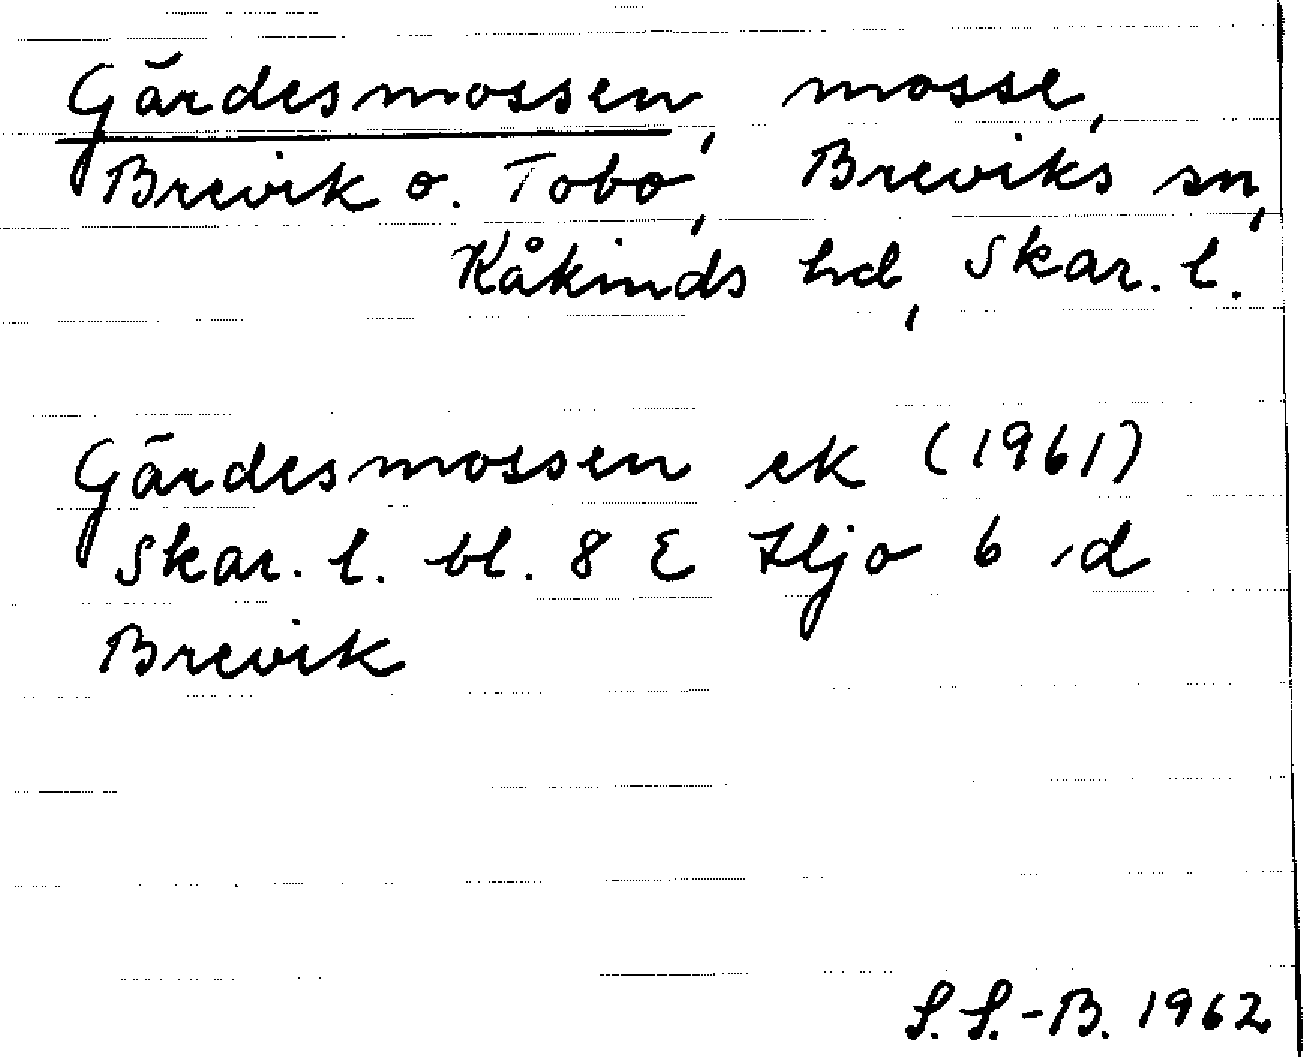 Gärdesmossen, mosse,
Brevik o. Tobo, Breviks sn,
Kåkinds hd, Skar. l.
Gärdesmossen ek (1961)
Skar. l. bl. 8 E Hjo 6 d
Brevik
S. S.-B. 1962